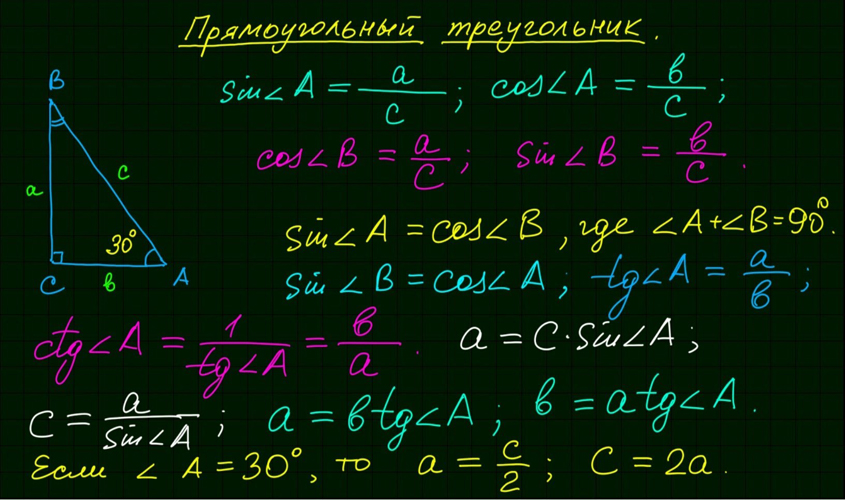 Прямоугольный треугольник.
B
a
c
30°
C
b
A
sin∠A = a/c; cos∠A = b/c;
cos∠B = a/c; sin∠B = b/c.
sin∠A = cos∠B, где ∠A+∠B=90°.
sin∠B = cos∠A; tg∠A = a/b;
ctg∠A = 1/tg∠A = b/a. a = c·sin∠A;
c = a/sin∠A; a = b tg∠A; b = a tg∠A.
Если ∠A = 30°, то a = c/2; c = 2a.